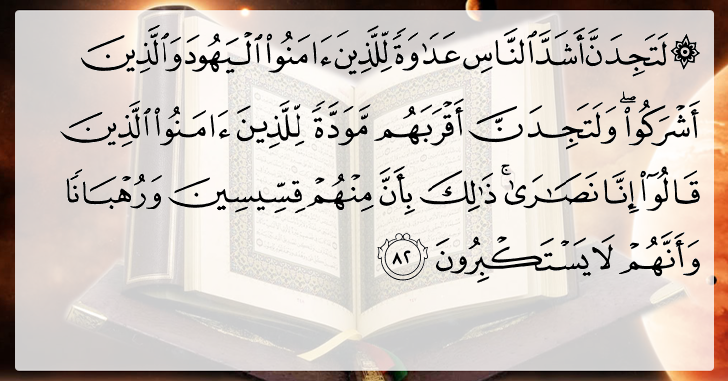 ۞ لَتَجِدَنَّ أَشَدَّ ٱلنَّاسِ عَدَٰوَةٗ لِّلَّذِينَ ءَامَنُواْ ٱلۡيَهُودَ وَٱلَّذِينَ
أَشۡرَكُواْۖ وَلَتَجِدَنَّ أَقۡرَبَهُم مَّوَدَّةٗ لِّلَّذِينَ ءَامَنُواْ ٱلَّذِينَ
قَالُوٓاْ إِنَّا نَصَٰرَىٰۚ ذَٰلِكَ بِأَنَّ مِنۡهُمۡ قِسِّيسِينَ وَرُهۡبَانٗا
وَأَنَّهُمۡ لَا يَسۡتَكۡبِرُونَ ٨٢